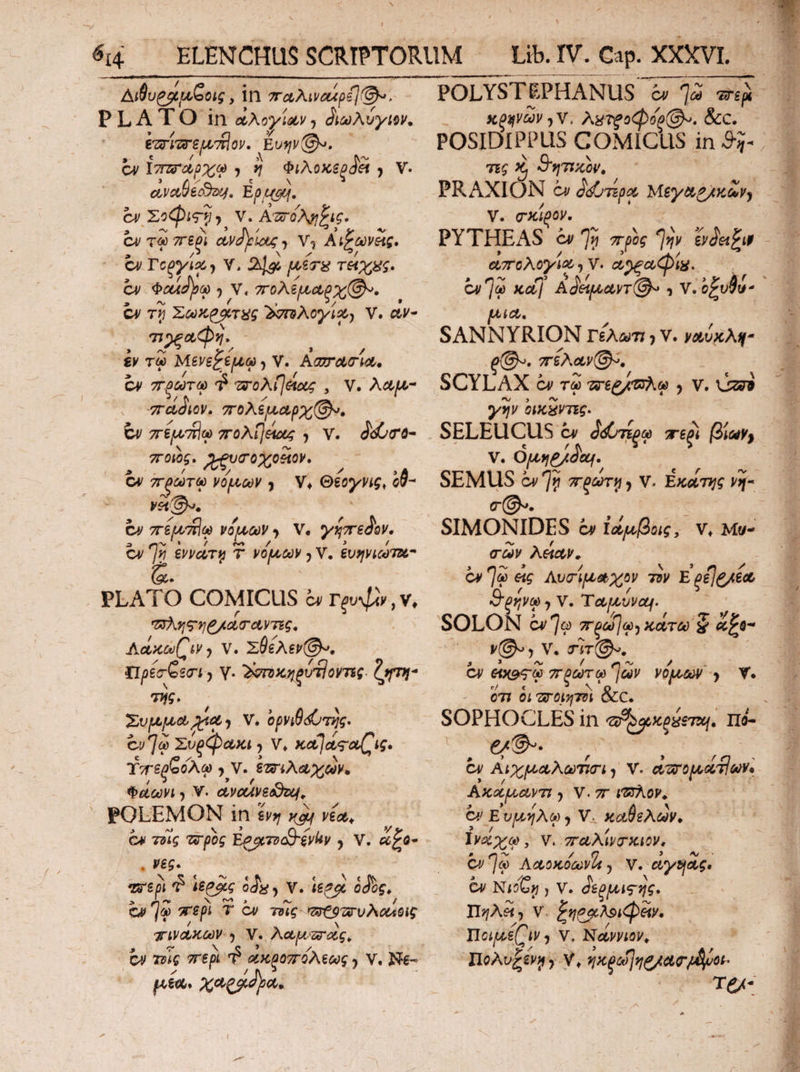 614 ELENCHUS SCRIPTORUM Lib. IV. Cap. XXXVI.
Διθυράμβοις, in παλιναίρετος.
PLATO in ἀλογίαν, διωλύγιον.
ἐπίπεμπτον. Εὐην@.
ἐν Ἱππάρχῳ, ἢ Φιλοκερδεῖ, V.
ἀναθέσθαι. Ἑρμαῖ.
ἐν Σοφιστῇ, V. Ἀπόληξις.
ἐν τῷ περὶ ἀνδρίας, V, Αἰξωνεῖς.
ἐν Γοργίᾳ, V. Διὰ μέσου τείχους.
ἐν Φαίδρῳ, V. πολέμαρχος.
ἐν τῇ Σωκράτους ἀπολογίᾳ, V. ἀντιγραφή.
ἐν τῷ Μενεξέμῳ, V. Ἀσπασία.
ἐν πρώτῳ τῆς πολιτείας, V. λαμπάδιον. πολέμαρχος.
ἐν πέμπτῳ πολιτείας, V. δευσοποιός. χρυσοχοεῖον.
ἐν πρώτῳ νόμων, V. Θέογνις, ὀθνεῖος.
ἐν πέμπτῳ νόμων, V. γήπεδον.
ἐν τῇ ἐννάτῃ τῶν νόμων, V. εὐηνιώτατα.
PLATO COMICUS ἐν Γρυψὶν, V.
πληστηριάσαντες.
Λάκωσιν, V. Σθέλενος.
Πρέσβεσι, V. ἀποκηρύττοντες ζητητής.
Συμμαχία, V. ὀρνιθευτής.
ἐν τῷ Σύρφακι, V. κατάστασις.
Ὑπερβόλῳ, V. ἐπιλαχών.
Φάωνι, V. ἀναίνεσθαι.
POLEMON in ἔνη καὶ νέα.
ἐν τοῖς πρὸς Ἐρατοσθένην, V. ἄξονες.
περὶ τῆς ἱερᾶς ὁδοῦ, V. ἱερὰ ὁδός.
ἐν τῷ περὶ τῶν ἐν τοῖς προπυλαίοις
πινάκων, V. λαμπάς.
ἐν τοῖς περὶ τῆς ἀκροπόλεως, V. Νεμέα. χαράδρα.
POLYSTEPHANUS ἐν τῷ περὶ
κρηνῶν, V. λουτροφόρος. &c.
POSIDIPPUS COMICUS in θῆτες καὶ θητικόν.
PRAXION ἐν δεύτερα Μεγαρικῶν,
V. σκίρον.
PYTHEAS ἐν τῇ πρὸς τὴν ἔνδειξιν
ἀπολογίᾳ, V. ἀγραφίου.
ἐν τῷ κατ' Ἀδείμαντος, V. ὀξυθύμια.
SANNYRION Γέλωτι, V. ναύκληρος. πέλανος.
SCYLAX ἐν τῷ περίπλῳ, V. ὑπὸ
γῆν οἰκοῦντες.
SELEUCUS ἐν δευτέρῳ περὶ βίων,
V. Ὁμηρίδαι.
SEMUS ἐν τῇ πρώτῃ, V. Ἑκάτης νῆσος.
SIMONIDES ἐν ἰάμβοις, V. Μυσῶν λείαν.
ἐν τῷ εἰς Λυσίμαχον τὸν Ἐρετριέα
θρήνῳ, V. Ταμύναι.
SOLON ἐν τῷ πρώτῳ, κάτω ὁ ἄξονος, V. σῖτος.
ἐν εἰκοστῷ πρώτῳ τῶν νόμων, V.
ὅτι οἱ ποιητοὶ &c.
SOPHOCLES in παρακρούεται. Πόριος.
ἐν Αἰχμαλωτίσι, V. ἀπομάττων.
Ἀκάμαντι, V. π ιπλον.
ἐν Εὐμήλῳ, V. καθελών.
Ἰνάχῳ, V. παλίνσκιον.
ἐν τῷ Λαοκόωντι, V. ἀγυιάς.
ἐν Νιόβῃ, V. δερμιστής.
Πηλεῖ, V. ξηραλοιφεῖν.
Ποιμέσιν, V. Νάννιον.
Πολυξένῃ, V. ἠκρωτηριασμένοι.
Τρι-